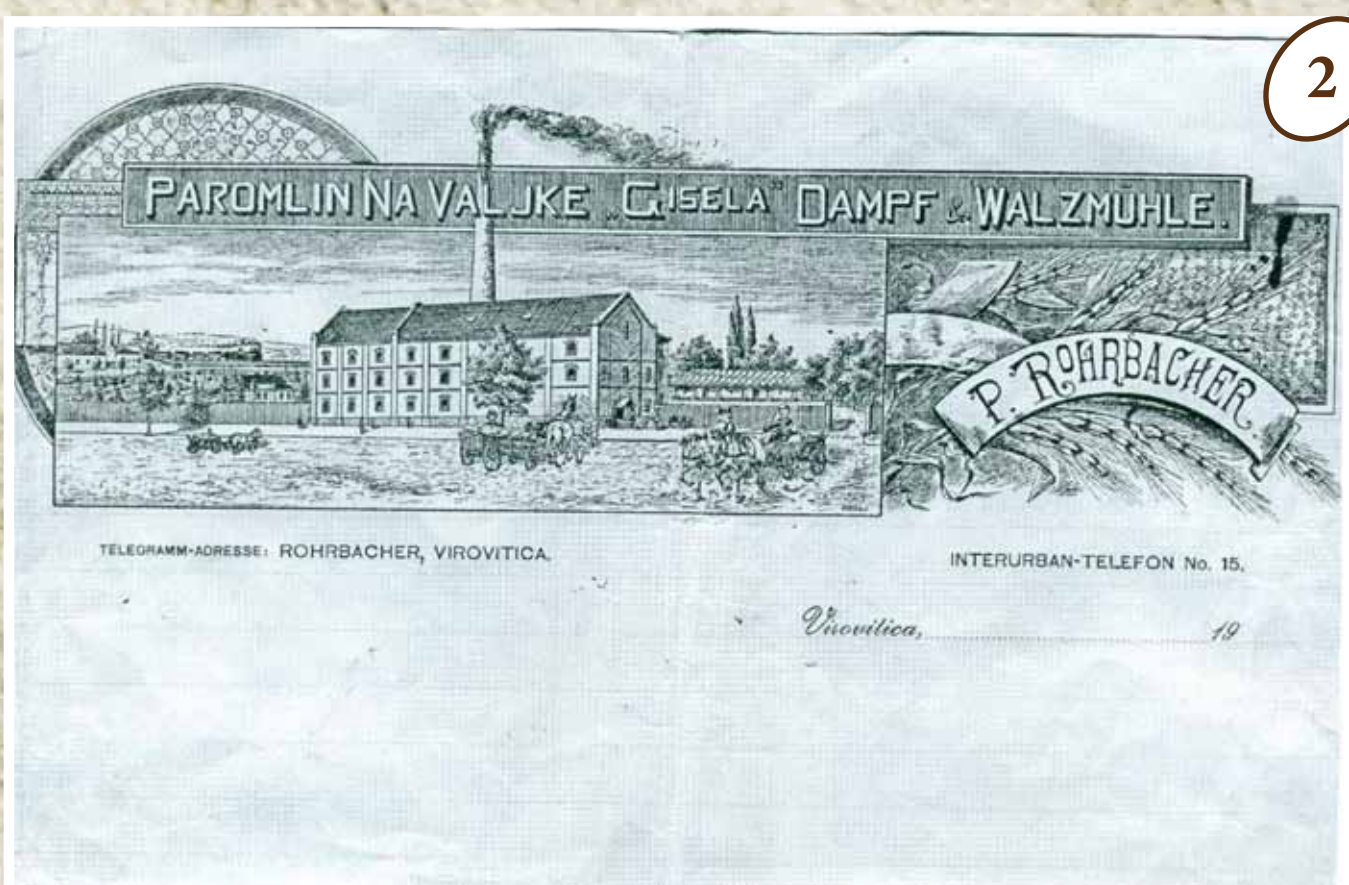 2
PAROMLIN NA VALJKE „GISELA” DAMPF & WALZMÜHLE.
P. ROHRBACHER.
TELEGRAMM-ADRESSE: ROHRBACHER, VIROVITICA.
INTERURBAN-TELEFON No. 15.
Virovitica, 19